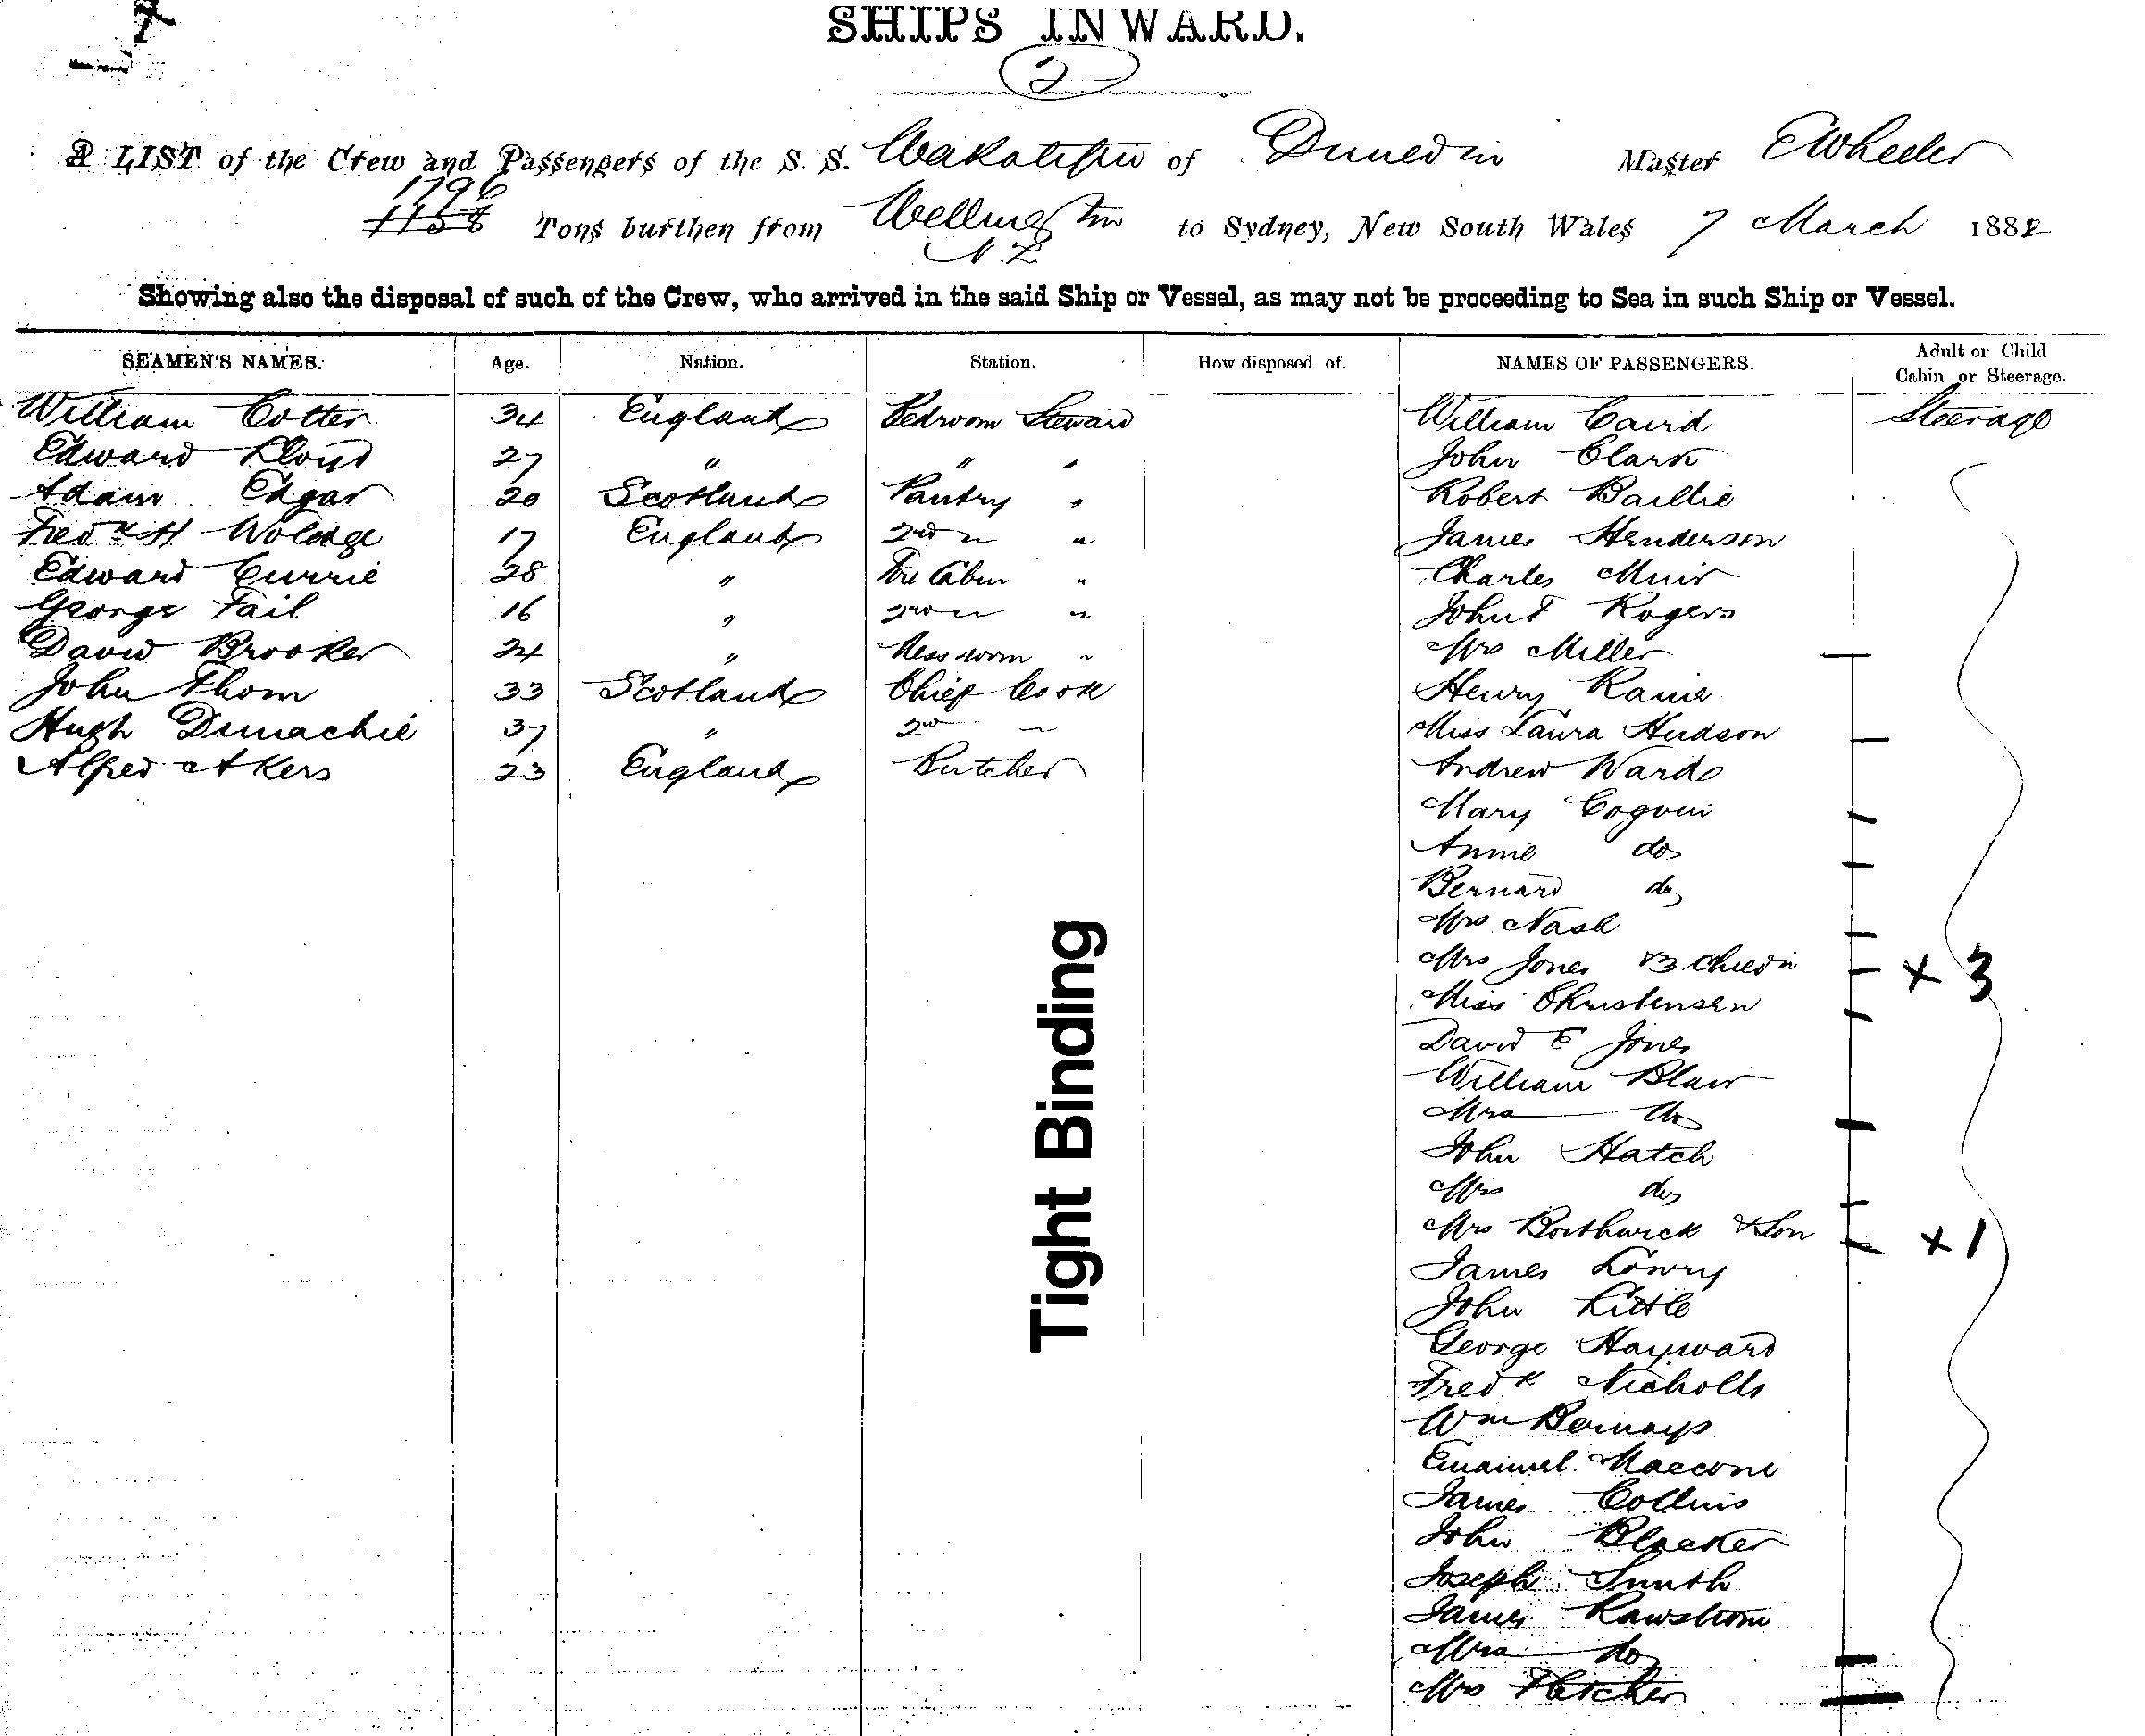 SHIPS INWARD.
2
A LIST of the Crew and Passengers of the S. S. Wakatipu of Dunedin Master E Wheeler
1796
1158 Tons burthen from Wellington to Sydney, New South Wales 7 March 1882
N.Z
Showing also the disposal of such of the Crew, who arrived in the said Ship or Vessel, as may not be proceeding to Sea in such Ship or Vessel.
SEAMEN'S NAMES. Age. Nation. Station. How disposed of. NAMES OF PASSENGERS. Adult or Child Cabin or Steerage.
William Cotter 34 England Bedroom Steward William Caird Steerage
Edward Lloyd 27 " " " John Clark
Adam Edgar 20 Scotland Pantry " Robert Baillie
Fredk H 17 England 2nd " " James Henderson
Edward Currie 28 " Fore Cabin " Charles Muir
George Fail 16 " 2nd " " John T Rogers
David Brooker 24 " Mess room " Mrs Miller
John Thom 33 Scotland Chief Cook Henry
Hugh 37 " 2nd " Miss Laura Hudson
Alfred Akers 23 England Butcher Andrew Ward
Mary
Annie do
Bernard do
Mrs Nash
Mrs Jones & 3 Childn x 3
Miss Christensen
David E Jones
William Blair
Mrs do
John Hatch
Mrs do
Mrs Borthwick & Son x 1
James Lowry
John Little
George Hayward
Fredk Nicholls
Wm Bernays
Emanuel
James Collins
John Blacker
Joseph Smith
James Rawstrom
Mrs do
Mrs Fletcher
Tight Binding